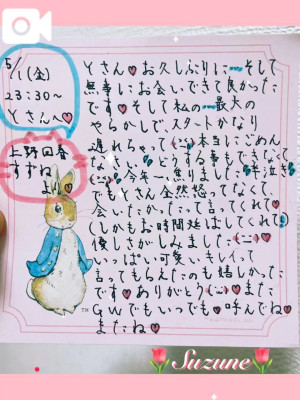 5/1(金)
23:30~
Yさんへ♡
上野回春
すずね
より♡
Yさん♡お久しぶりにそして
無事にお会いできて良かった
です♡そして私の最大の
やらかしで、スタートかなり
遅れちゃって本当にごめん
なさい!どうする事もできなくて
今年一焦りました半泣き
でもYさん全然怒ってなくて、
会いたかったって言ってくれて♡
(しかもお時間延ばしてくれて)
優しさがしみました
いっぱい可愛いキレイって
言ってもらえたのも嬉しかった
です♡ありがとうまた
GWでもいつでも♡呼んでね♡
またね♡
Suzune